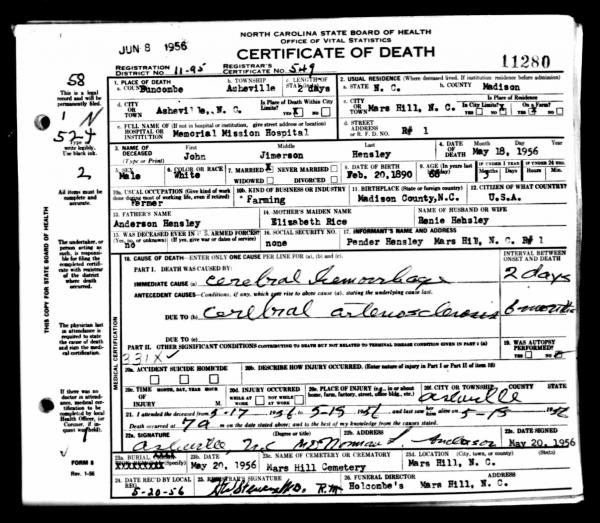 NORTH CAROLINA STATE BOARD OF HEALTH
OFFICE OF VITAL STATISTICS
JUN 8 1956
CERTIFICATE OF DEATH
11280
REGISTRATION DISTRICT NO. 11-95
REGISTRAR'S CERTIFICATE NO. 549
1. PLACE OF DEATH
a. COUNTY Buncombe
b. TOWNSHIP Asheville
c. LENGTH OF STAY 2 days
2. USUAL RESIDENCE (Where deceased lived. If institution: residence before admission)
a. STATE N. C.
b. COUNTY Madison
d. CITY OR TOWN Asheville, N. C.
Is Place of Death Within City Limits?
YES NO
c. CITY OR TOWN Mars Hill, N.C.
Is Place of Residence In City Limits? On a Farm?
e. FULL NAME OF (If not in hospital or institution, give street address or location)
HOSPITAL OR INSTITUTION Memorial Mission Hospital
d. STREET ADDRESS OR R. F. D. NO. R# 1
3. NAME OF DECEASED (Type or Print)
First Middle Last
John Jimerson Hensley
4. DATE OF DEATH May 18, 1956
5. SEX Male
6. COLOR OR RACE White
7. MARRIED X NEVER MARRIED
WIDOWED DIVORCED
8. DATE OF BIRTH Feb. 20, 1890
9. AGE (In years last birthday)
IF UNDER 1 YEAR Months Days
IF UNDER 24 HRS. Hours Min.
10a. USUAL OCCUPATION (Give kind of work done during most of working life, even if retired) Farmer
10b. KIND OF BUSINESS OR INDUSTRY Farming
11. BIRTHPLACE (State or foreign country) Madison County, N.C.
12. CITIZEN OF WHAT COUNTRY? U.S.A.
13. FATHER'S NAME Anderson Hensley
14. MOTHER'S MAIDEN NAME Elizabeth Rice
NAME OF HUSBAND OR WIFE Renie Hensley
15. WAS DECEASED EVER IN U. S. ARMED FORCES? (Yes, no, or unknown) (If yes, give war or dates of service) no
16. SOCIAL SECURITY NO. none
17. INFORMANT'S NAME AND ADDRESS Pender Hensley Mars Hill, N. C. R# 1
18. CAUSE OF DEATH—ENTER ONLY ONE CAUSE PER LINE FOR (a), (b) and (c).
INTERVAL BETWEEN ONSET AND DEATH
PART I. DEATH WAS CAUSED BY:
IMMEDIATE CAUSE (a) cerebral hemorrhage 2 days
ANTECEDENT CAUSES—Conditions, if any, which gave rise to above cause (a), stating the underlying cause last.
DUE TO (b) cerebral arteriosclerosis 6 months
DUE TO (c)
PART II. OTHER SIGNIFICANT CONDITIONS CONTRIBUTING TO DEATH BUT NOT RELATED TO TERMINAL DISEASE CONDITION GIVEN IN PART I (a)
331X
19. WAS AUTOPSY PERFORMED? YES NO
20a. ACCIDENT SUICIDE HOMICIDE
20b. DESCRIBE HOW INJURY OCCURRED. (Enter nature of injury in Part I or Part II of item 18)
20c. TIME OF INJURY MONTH, DAY, YEAR HOUR M.
20d. INJURY OCCURRED
WHILE AT WORK NOT WHILE AT WORK
20e. PLACE OF INJURY (e.g., in or about home, farm, factory, street, office bldg., etc.)
20f. CITY OR TOWNSHIP COUNTY STATE
Asheville
21. I attended the deceased from 5-17 1956 to 5-18 1956 and last saw alive on 5-18 1956
Death occurred at 7 a m on the date stated above; and to the best of my knowledge from the causes stated.
22a. SIGNATURE (Degree or title)
22b. ADDRESS
22c. DATE SIGNED
Asheville, N.C. Norman Anderson May 20, 1956
23a. BURIAL
23b. DATE May 20, 1956
23c. NAME OF CEMETERY OR CREMATORY Mars Hill Cemetery
23d. LOCATION (City, town, or county) (State) Mars Hill, N. C.
24. DATE REC'D BY LOCAL REG. 5-20-56
25. REGISTRAR'S SIGNATURE
26. FUNERAL DIRECTOR ADDRESS
Holcombe's Mars Hill, N. C.
58
This is a legal record and will be permanently filed.
1 N
524
Type or write legibly. Use black ink.
2
All items must be complete and accurate.
THIS COPY FOR STATE BOARD OF HEALTH
The undertaker, or person acting as such, is responsible for filing the completed certificate with registrar of the district where death occurred.
The physician last in attendance is required to state the cause of death and sign the medical certification.
MEDICAL CERTIFICATION
If there was no doctor in attendance, medical certification to be completed by local Health Officer, (or Coroner, if inquest was held).
FORM 8
Rev. 1-56